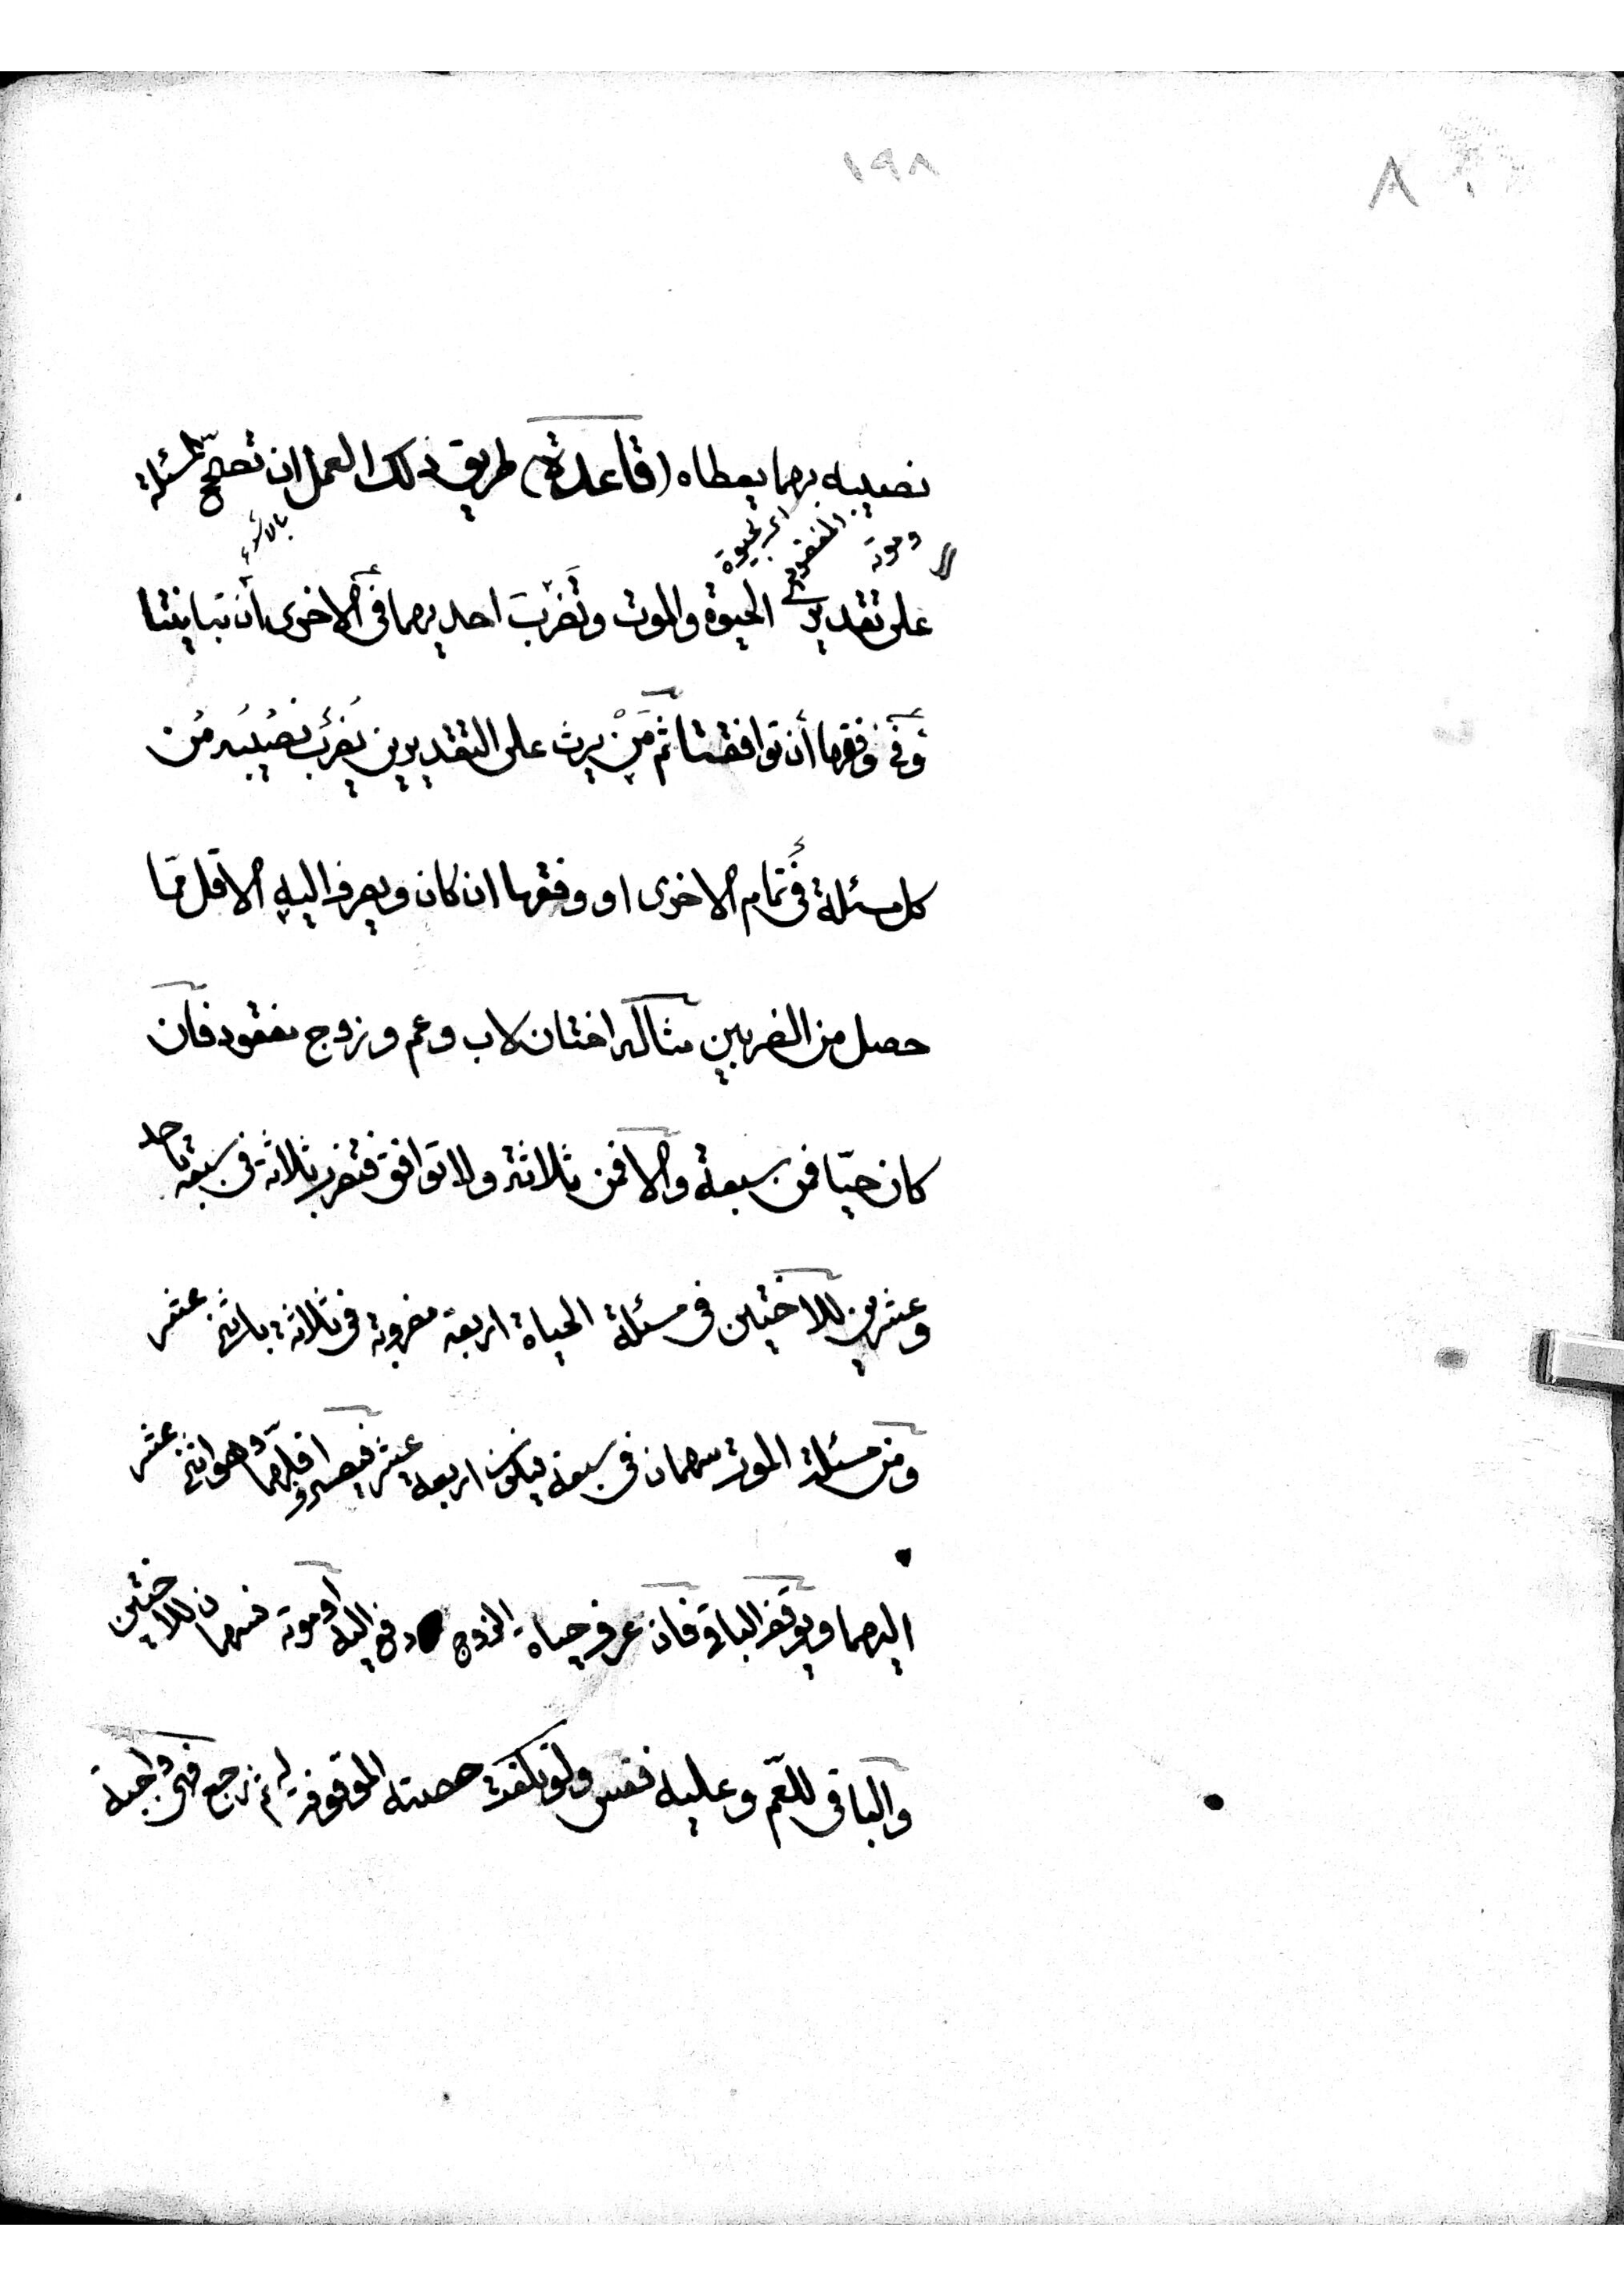 ١٩٨
٨
نصيبه بهما يعطاه (قاعدة) طريق ذلك العمل ان تصحّح المسئلة
على تقديرى الحيوة والموت وتضرب احديهما فى الاخرى أن تباينتا
وفى وفقها أن توافقتا ثم مَنْ يرث على التقديرين يُضرَبُ نصيبُه مُن
كل مسئلة فى تمام الاخرى او وفقها ان كان ويصرف اليه الاقل ممّا
حصل من الضربين مثاله اختان لاب وعم وزوج مفقود فان
كان حيّا فمن سبعة والا فمن ثلاثة ولا توافق فتضرب ثلاثة فى سبعة باحد
وعشرين للاختين فى مسئلة الحياة اربعة مضروبة فى ثلاثة باثنى عشر
ومن مسئلة الموت سهمان فى سبعة يكون اربعة عشر فيصرف اقلهما وهو اثنى عشر
اليهما ويوقف الباقى فان عرف حياة الزوج دفع اليه او موته فسهمان للاختين
والباقى للعّم وعليه فقس ولو تلفت حصته الموقوفة له ثم رجع فهى واجبة